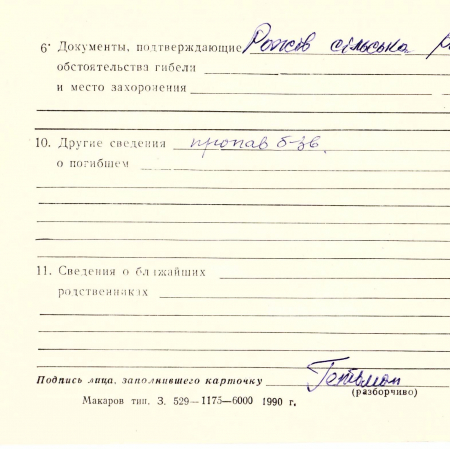 6· Документы, подтверждающие Рожів сільська
обстоятельства гибели
и место захоронения
10. Другие сведения пропав б-зв.
о погибшем
11. Сведения о ближайших
родственниках
Подпись лица, заполнившего карточку Гетьман
(разборчиво)
Макаров тип. З. 529—1175—6000 1990 г.